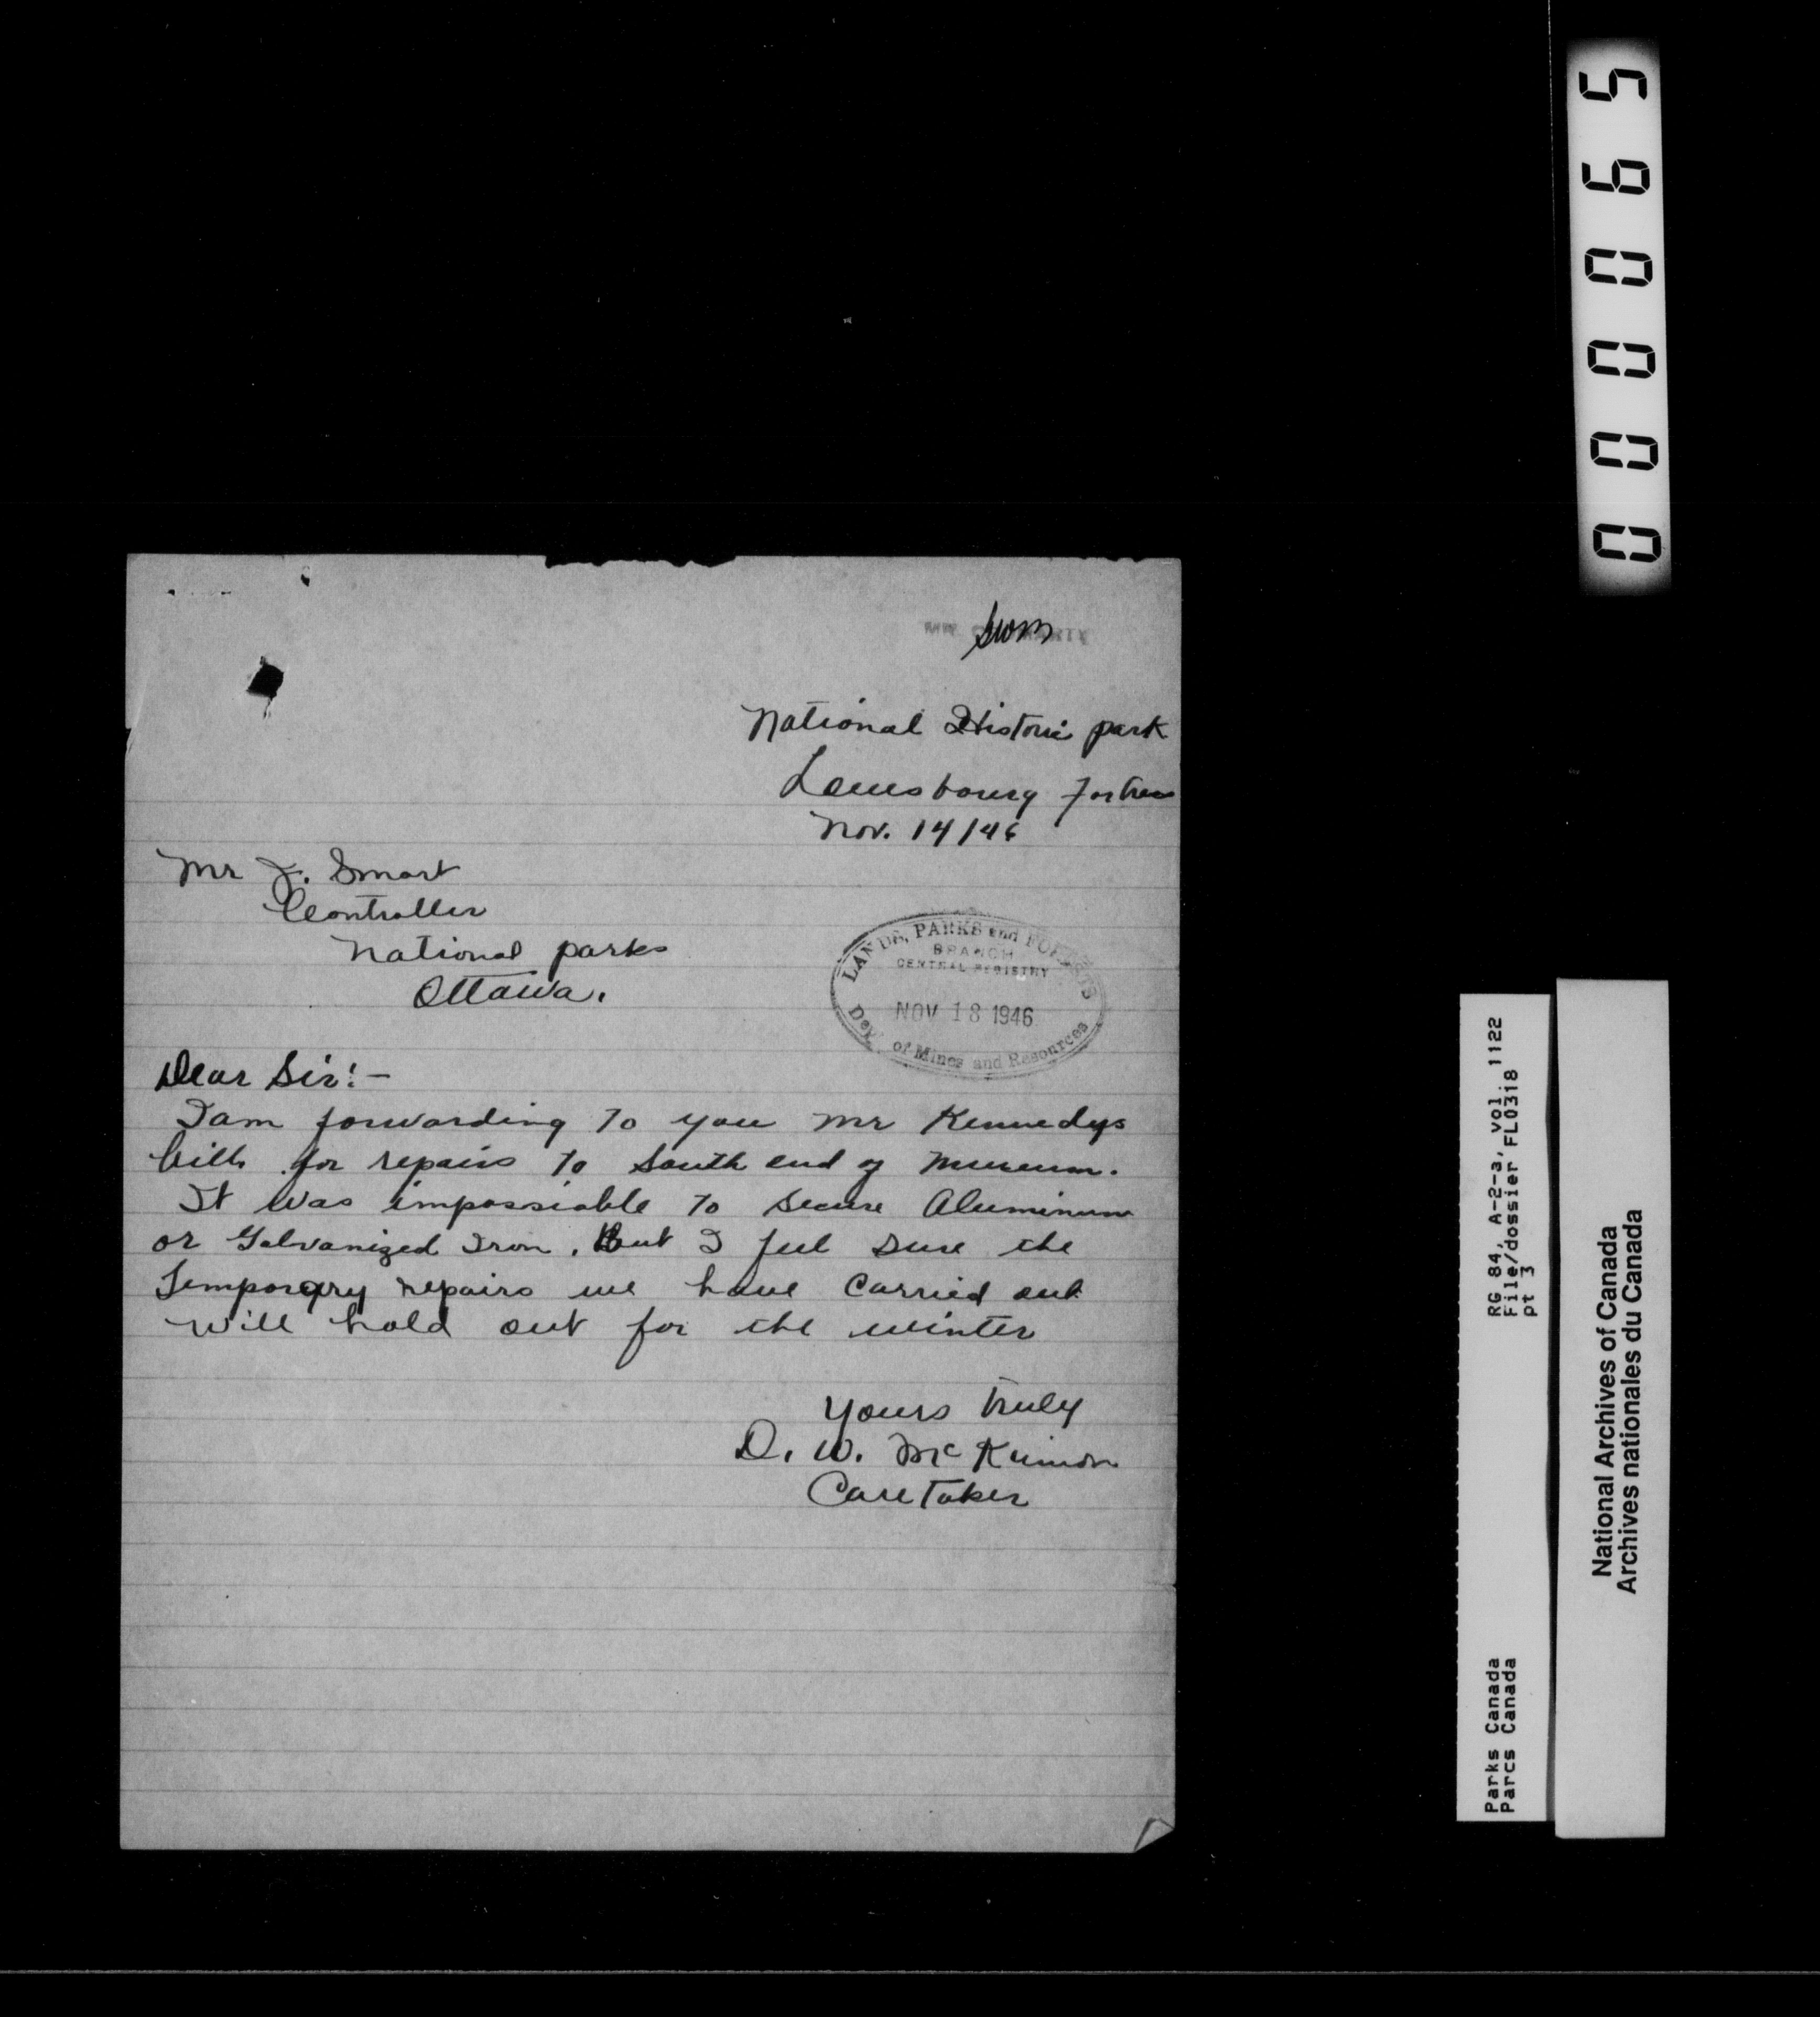 000065
National Historic park
Louisbourg Fortress
Nov. 14/46
Mr J. Smart
Controller
National parks
Ottawa.
LANDS, PARKS and FORESTS
BRANCH
CENTRAL REGISTRY
NOV 18 1946
Dept. of Mines and Resources
Dear Sir:-
I am forwarding to you Mr Kennedys
bills for repairs to South end of Museum.
It was impossiable to secure Aluminum
or Galvanized Iron. But I feel sure the
Temporary repairs we have carried out
will hold out for the winter
Yours truly
D. W. McKinnon
CareTaker
Parks Canada
Parcs Canada
RG 84, A-2-a, vol. 1122
File/dossier FL0318
pt 3
National Archives of Canada
Archives nationales du Canada